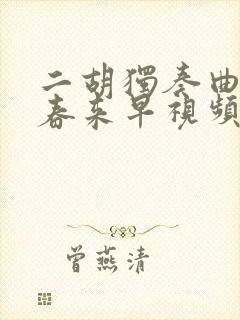 二胡獨奏曲
春來早視頻
曾燕清